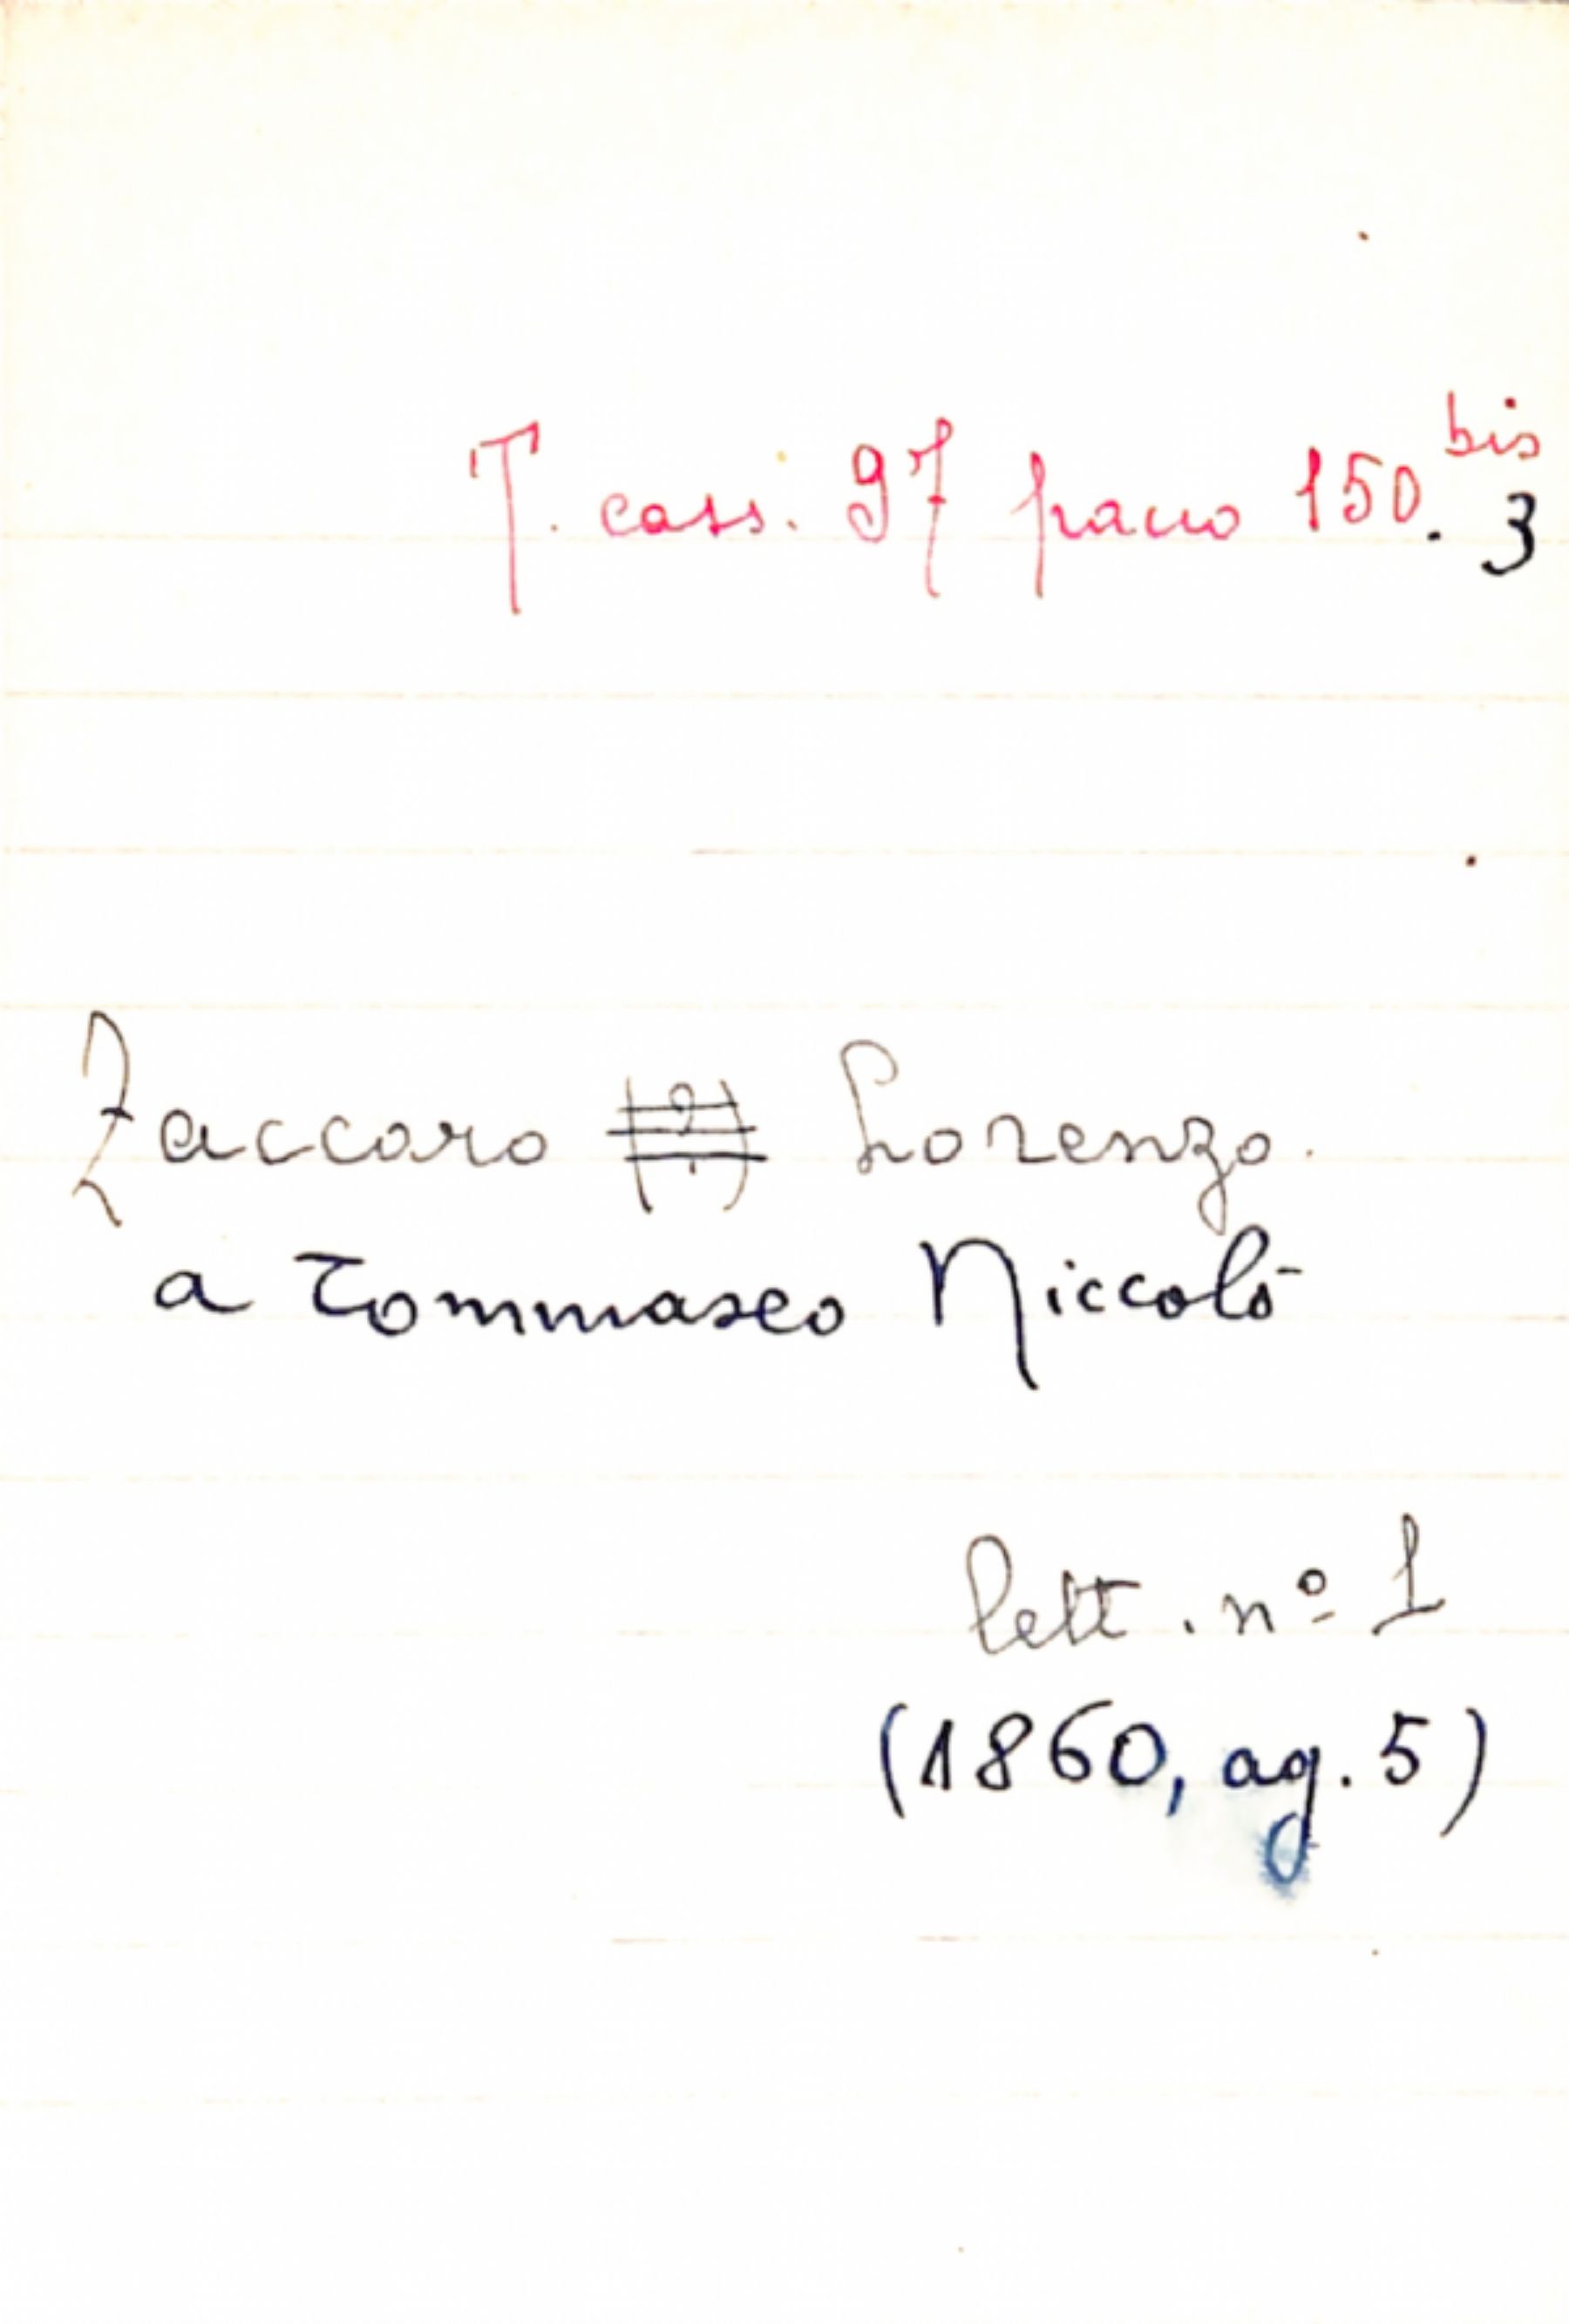 T. cass. 97 pacco 150.bis 3
Zaccaro (?) Lorenzo.
a Tommaseo Niccolò
lett. nº 1
(1860, ag. 5)